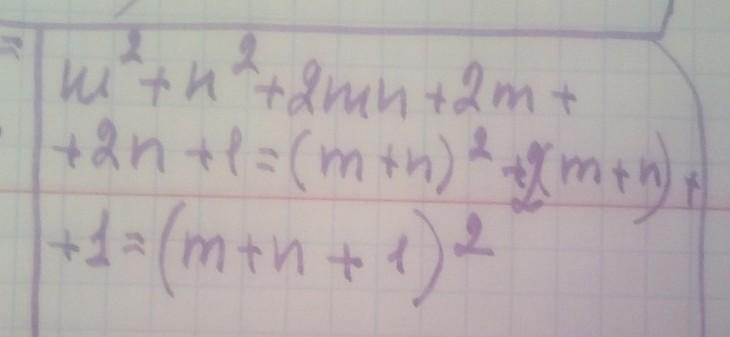 =
m² + n² + 2mn + 2m +
+ 2n + 1 = (m + n)² + 2(m + n) +
+ 1 = (m + n + 1)²